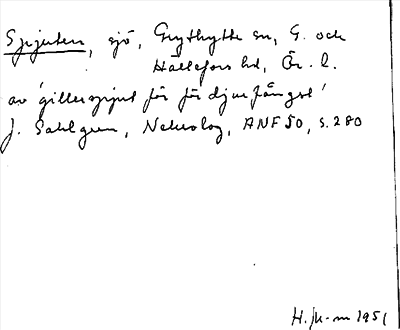 Spjuten, sjö, Grythytte sn, G. och
Hällefors hd, Ör. l.
av 'gillerspjut för för djurfångst'
J. Sahlgren, Nekrolog, ANF 50, s. 280
H. Jk-m 1951